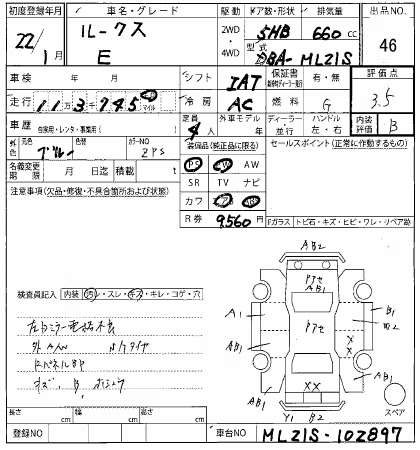 初度登録年月
22/1月
車名・グレード
ルークス
E
駆動 2WD・4WD
ドア数・形状 5HB
排気量 660 cc
型式 DBA-ML21S
出品NO. 46
車検 年 月
シフト IAT
保証書 有・無
評価点 3.5
走行 11万3千745 km マイル
冷房 AC
燃料 G
車歴 自家用・レンタ・事業用( )
定員 4人
外車モデル 年
ディーラー・並行
ハンドル 左・右
内装 B
外色 元色 ブルー 色替 カラーNO ZPS
装備品(純正品に限る)
PS PW AW
SR TV ナビ
カワ
R券 9,560円
セールスポイント(正常に作動するもの)
名義変更期限 月 日
積載 t
注意事項(欠品・修復・不具合箇所および状態)
Fガラス トビ石・キズ・ヒビ・ワレ・リペア跡
検査員記入 内装 ヨゴレ・スレ・キズ・キレ・コゲ・穴
左ドミラー電格不良
AB2
アセ
AB1
アセ
A1
B1
B2
AB1
X
X
AB1
XX
AB1
Y1 B2
スペア
長さ cm 幅 cm 高さ cm
登録NO
車台NO ML21S-102897